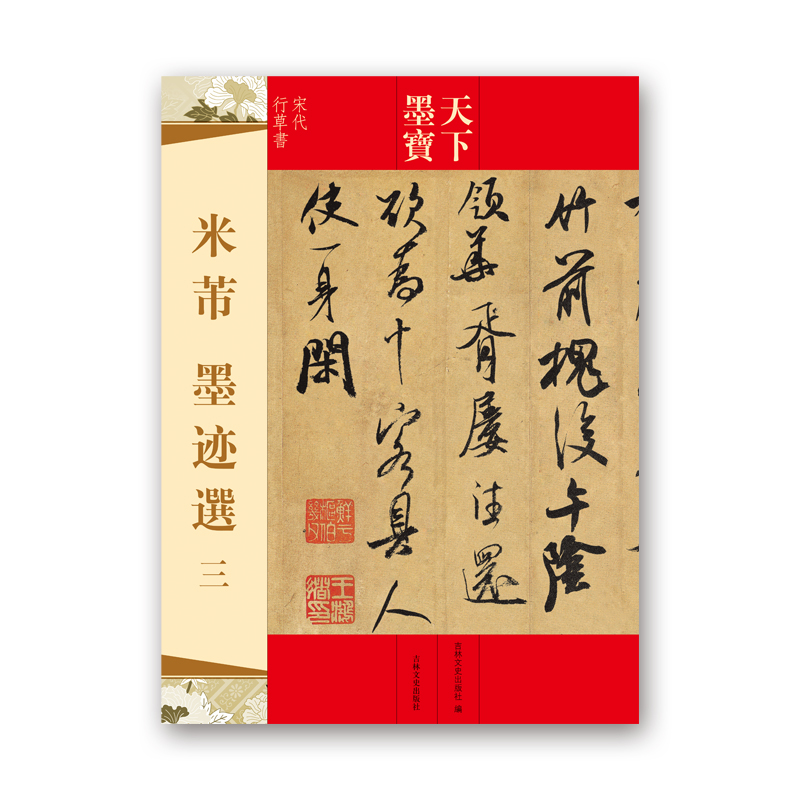 天下
墨寶
宋代
行草書
米芾 墨迹選 三
竹前槐後午陰
領華胥屢往還
欲為十客具人
使一身閑
吉林文史出版社 編
吉林文史出版社